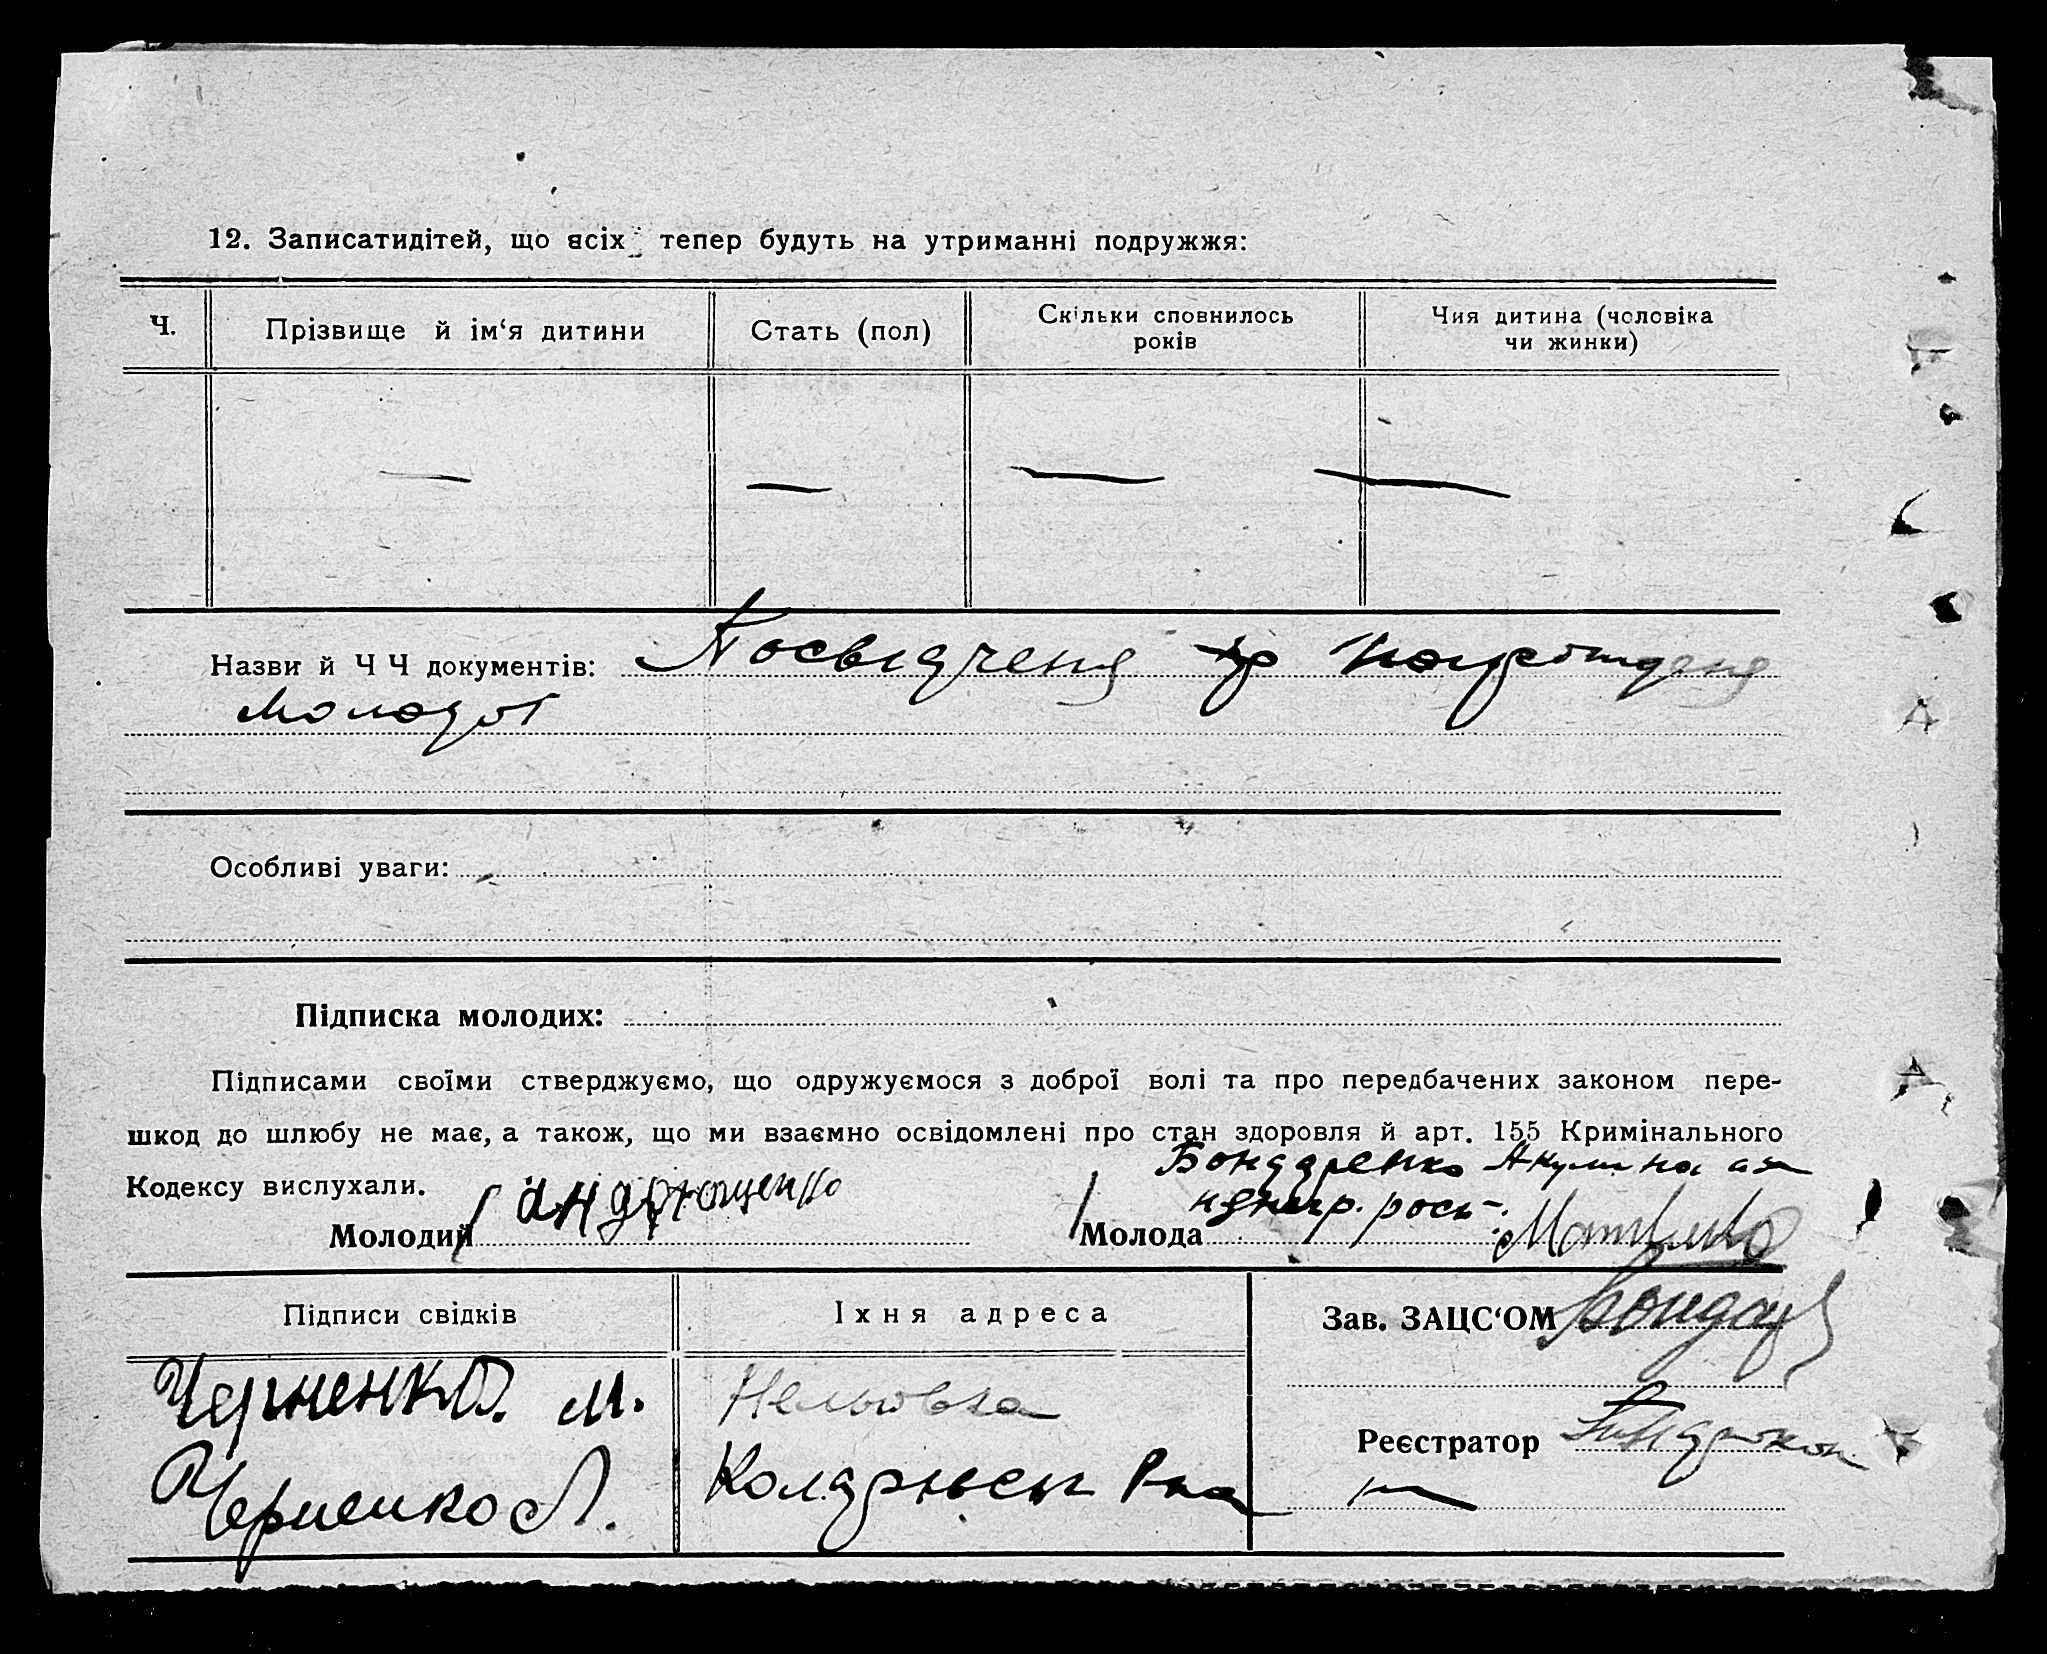 12. Записатидітей, що всіх тепер будуть на утриманні подружжя:
Ч.
Прізвище й ім‘я дитини
Стать (пол)
Скільки сповнилось
років
Чия дитина (чоловіка
чи жинки)
— — — —
Назви й Ч Ч документів: Посвідченя
молодої
Особливі уваги:
Підписка молодих:
Підписами своїми стверджуємо, що одружуємося з доброї волі та про передбачених законом пере-
шкод до шлюбу не має, а також, що ми взаємно освідомлені про стан здоровля й арт. 155 Кримінального
Кодексу вислухали.
Бондаренко Акулина а за
Молодий Андрющенко
Молода негр. рось
Підписи свідків
Їхня адреса
Зав. ЗАЦС‘ОМ
Черненко. М.
Черненко Л.
Реєстратор